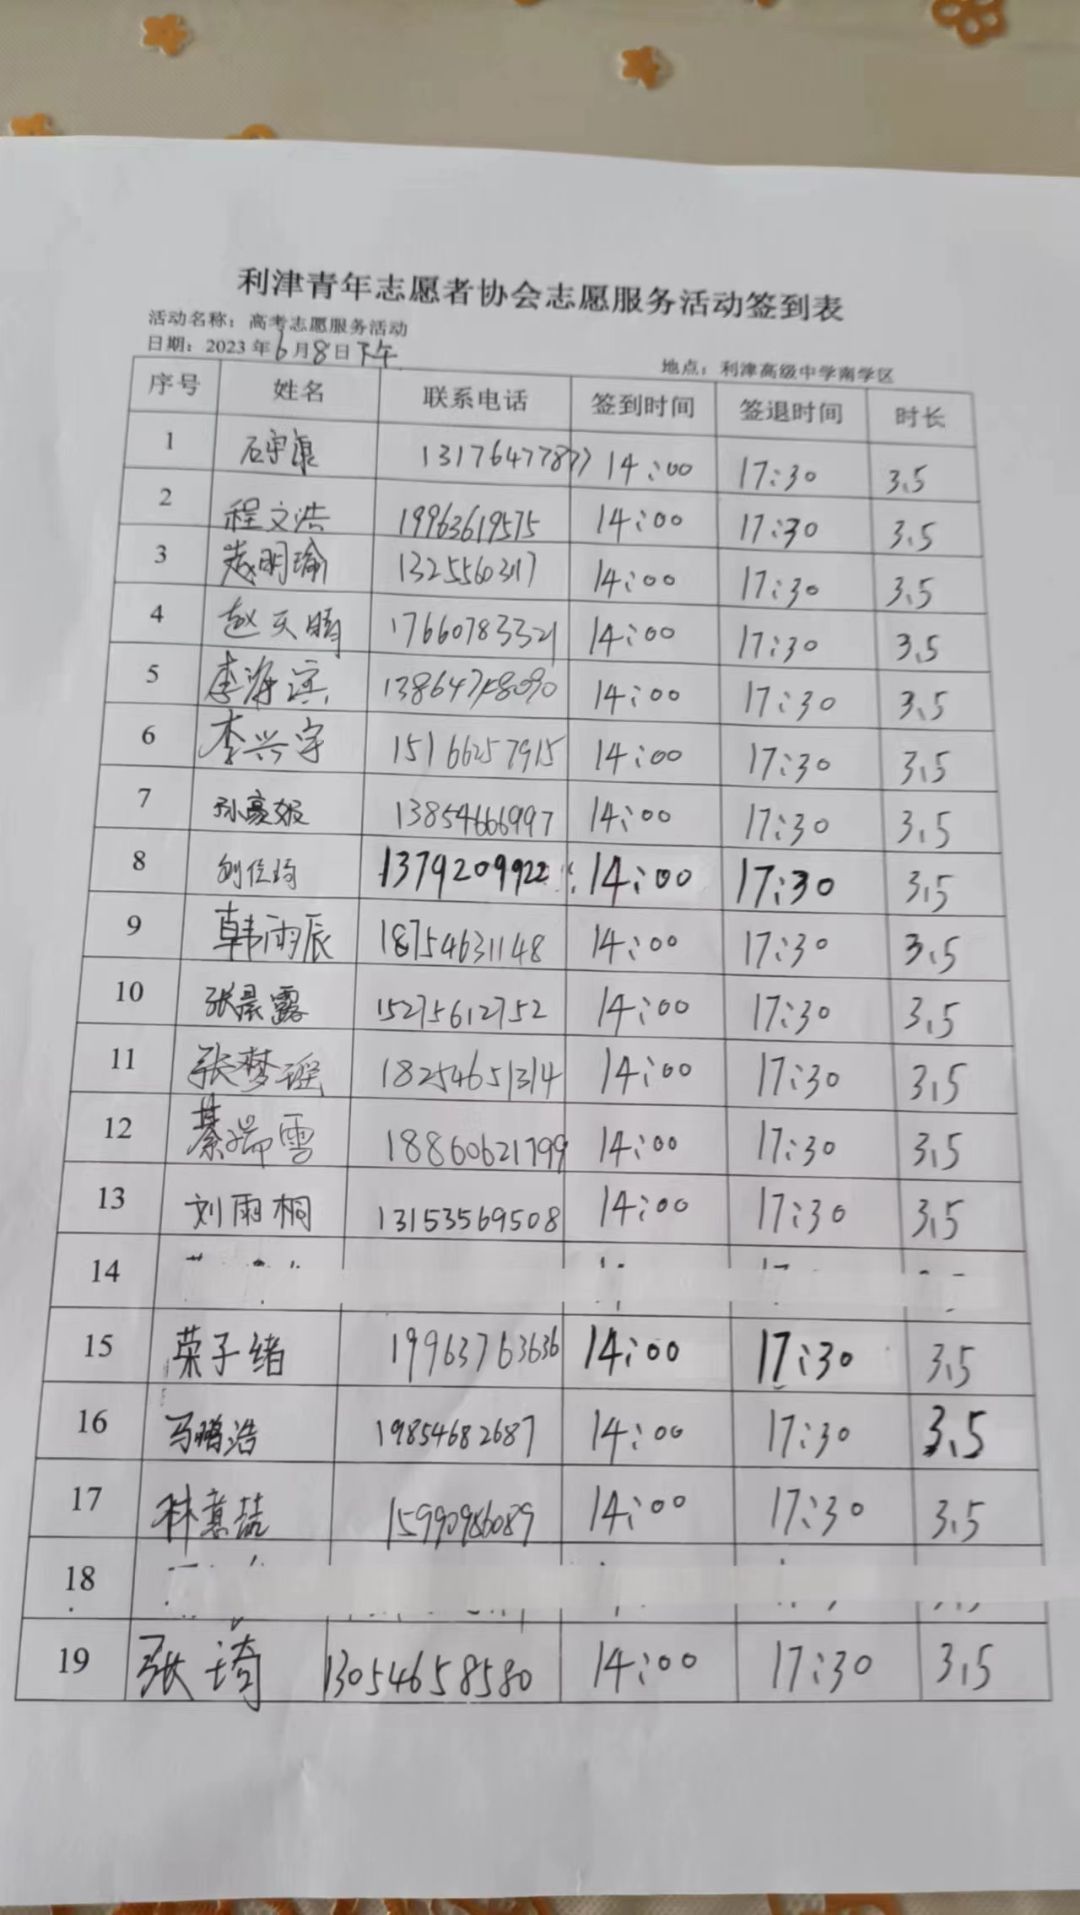 利津青年志愿者协会志愿服务活动签到表
活动名称：高考志愿服务活动
日期：2023年6月8日下午 地点：利津高级中学南学区
序号 姓名 联系电话 签到时间 签退时间 时长
1 石宇康 13176477877 14:00 17:30 3.5
2 程文浩 19963619575 14:00 17:30 3.5
3 明瑜 14:00 17:30 3.5
4 赵天晴 17660783321 14:00 17:30 3.5
5 李海滨 14:00 17:30 3.5
6 李兴宇 15166257915 14:00 17:30 3.5
7 孙豪姬 13854666997 14:00 17:30 3.5
8 1379209922 14:00 17:30 3.5
9 韩雨辰 18754631148 14:00 17:30 3.5
10 张晨露 15275612752 14:00 17:30 3.5
11 张梦瑶 18254651314 14:00 17:30 3.5
12 綦瑞雪 18860621799 14:00 17:30 3.5
13 刘雨桐 13153569508 14:00 17:30 3.5
14
15 荣子绪 19963763636 14:00 17:30 3.5
16 马鹏浩 19854682687 14:00 17:30 3.5
17 林意喆 15990986089 14:00 17:30 3.5
18
19 张琦 13054658580 14:00 17:30 3.5